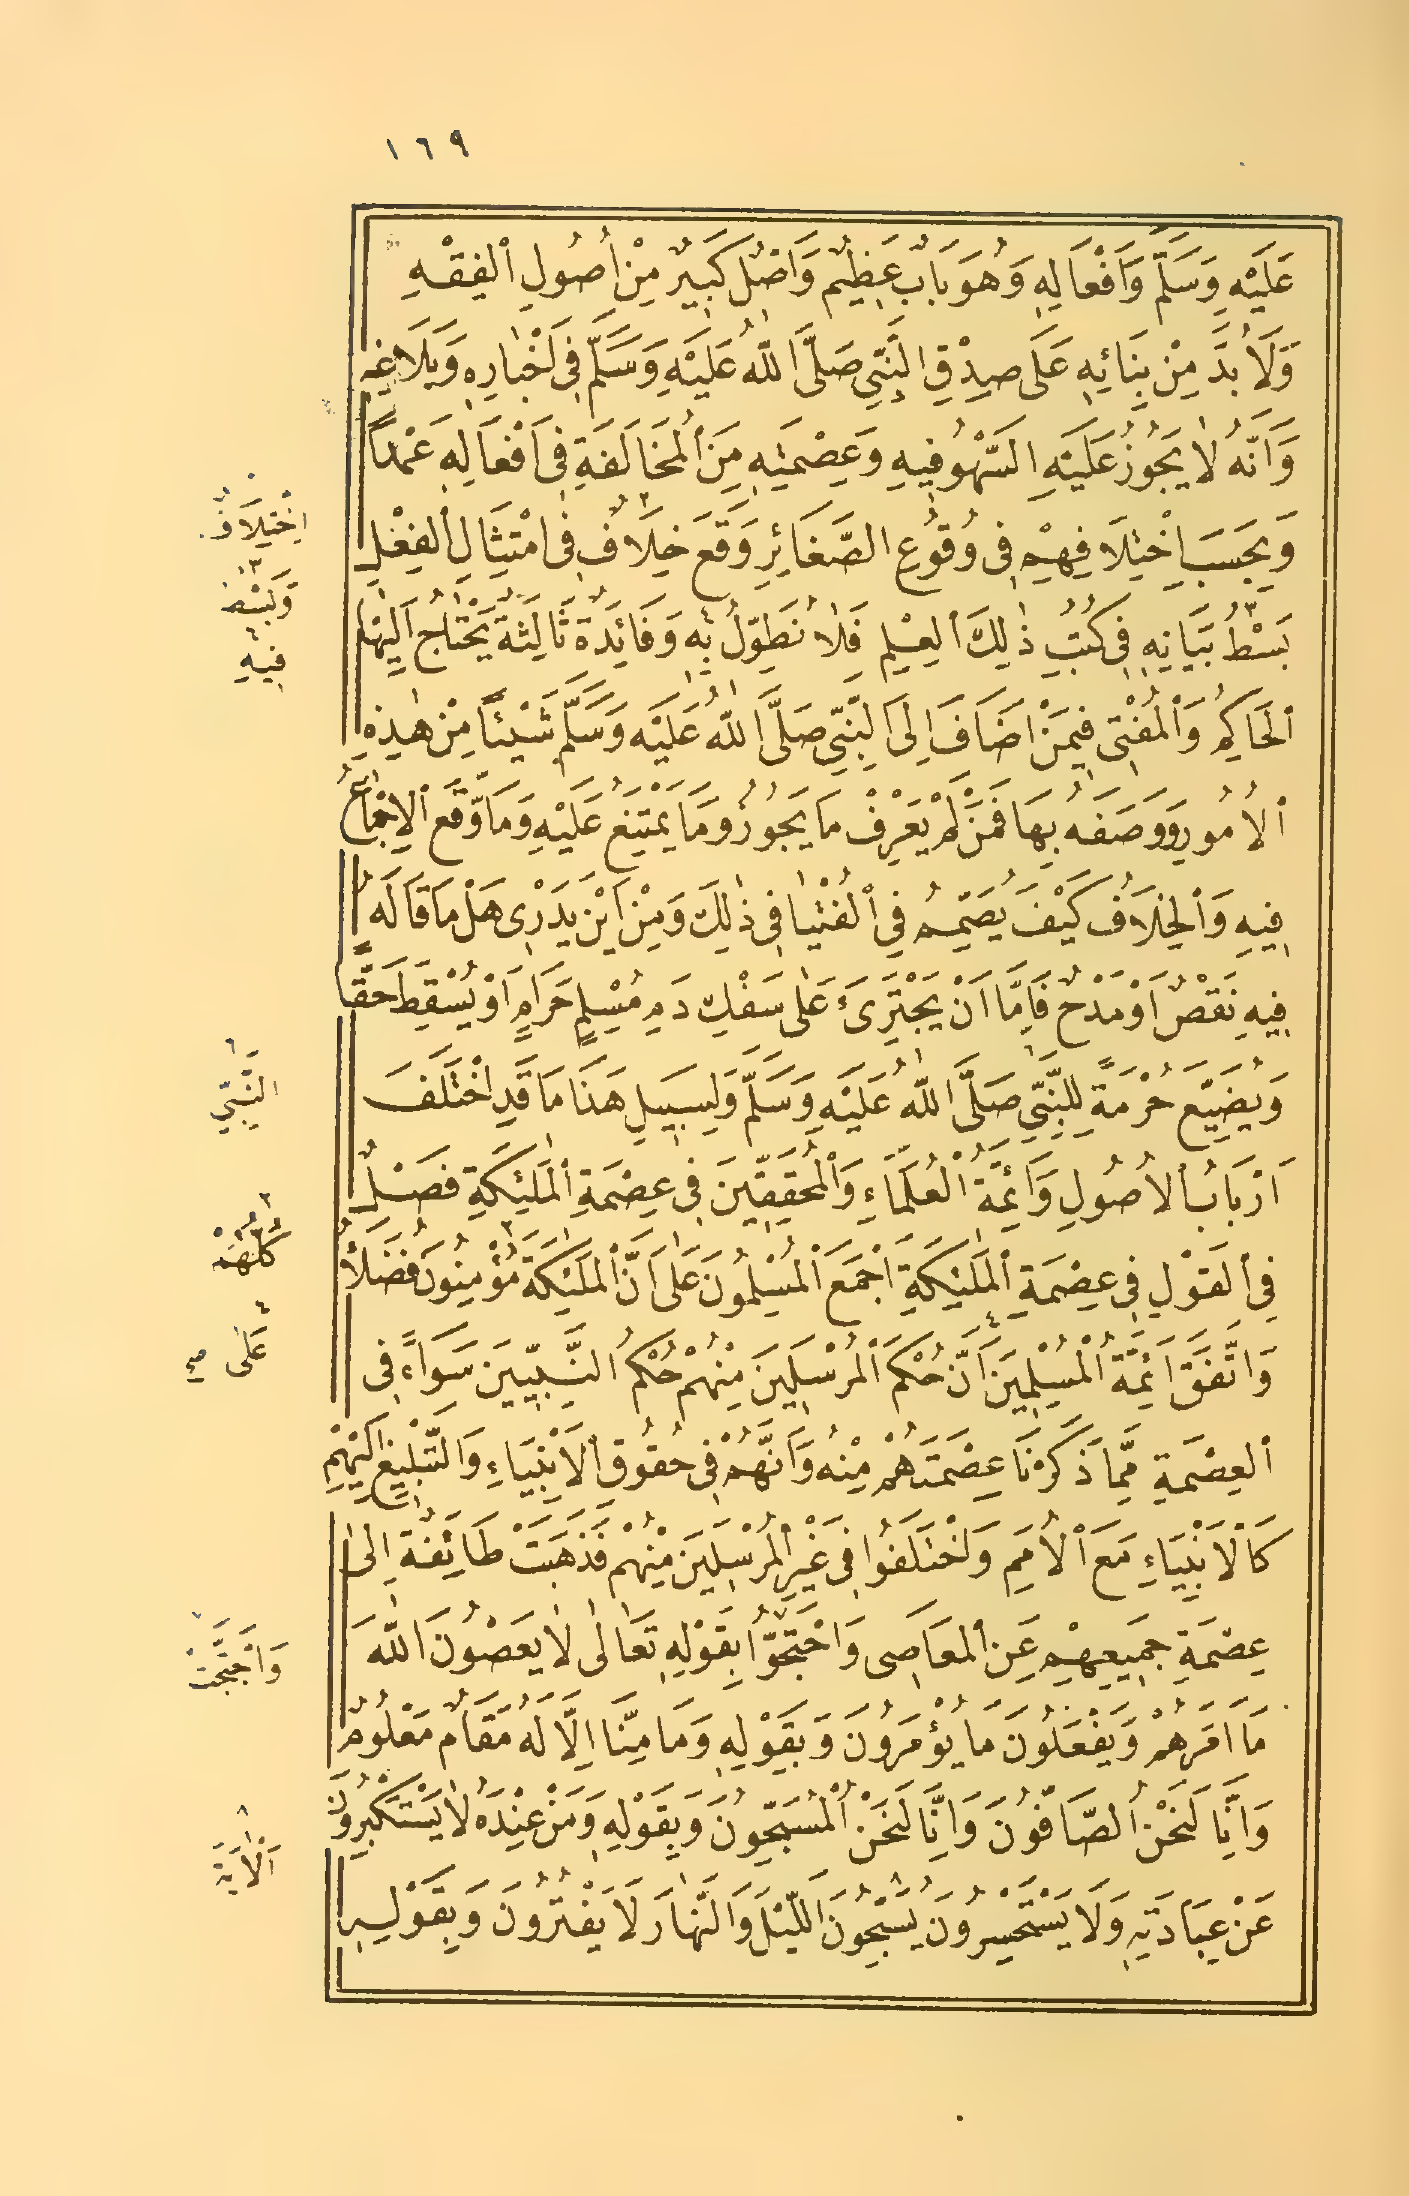 ١٦٩
عَلَيْهِ وَسَلَّمَ وَاَفْعَالِهِ وَهُوَ بَابٌ عَظِيمٌ وَاَصْلٌ كَبِيرٌ مِنْ اُصُولِ الْفِقْهِ
وَلَا بُدَّ مِنْ بِنَائِهِ عَلَى صِدْقِ النَّبِيِّ صَلَّى اللّٰهُ عَلَيْهِ وَسَلَّمَ فِى اَخْبَارِهِ وَبَلَاغِهِ
وَاَنَّهُ لَا يَجُوزُ عَلَيْهِ السَّهْوُ فِيهِ وَعِصْمَتِهِ مِنَ الْمُخَالَفَةِ فِى اَفْعَالِهِ عَمْداً
وَبِحَسَبِ اخْتِلَافِهِمْ فِى وُقُوعِ الصَّغَائِرِ وَقَعَ خِلَافٌ ٢ فِى امْتِثَالِ الْفِعْلِ
بَسْطُ ٣ بَيَانِهِ فِى كُتُبِ ذٰلِكَ الْعِلْمِ فَلَا نُطَوِّلُ بِهِ ٤ وَفَائِدَةٌ ثَالِثَةٌ يَحْتَاجُ اِلَيْهَا
الْحَاكِمُ وَالْمُفْتِى فِيمَنْ اَضَافَ اِلَى النَّبِيِّ صَلَّى اللّٰهُ عَلَيْهِ وَسَلَّمَ شَيْئاً مِنْ هٰذِهِ
الْاُمُورِ وَوَصَفَهُ بِهَا فَمَنْ لَمْ يَعْرِفْ مَا يَجُوزُ وَمَا يَمْتَنِعُ عَلَيْهِ وَمَا وَقَعَ الْاِجْمَاعُ
فِيهِ وَالْخِلَافُ كَيْفَ يُصَمِّمُ فِى الْفُتْيَا فِى ذٰلِكَ وَمِنْ اَيْنَ يَدْرِى هَلْ مَا قَالَهُ
فِيهِ نَقْصٌ اَوْ مَدْحٌ فَاِمَّا اَنْ يَجْتَرِىَٔ عَلٰى سَفْكِ دَمِ مُسْلِمٍ حَرَامٍ اَوْ يُسْقِطَ حَقًّا
وَيُضَيِّعَ حُرْمَةً لِلنَّبِيِّ ٦ صَلَّى اللّٰهُ عَلَيْهِ وَسَلَّمَ وَلِسَبِيلِ هَذَا مَا قَدِ اخْتَلَفَ
اَرْبَابُ الْاُصُولِ وَاَئِمَّةُ الْعُلَمَاءِ وَالْمُحَقِّقِينَ فِى عِصْمَةِ الْمَلٰئِكَةِ فَصْلٌ
فِى الْقَوْلِ فِى عِصْمَةِ الْمَلٰئِكَةِ اَجْمَعَ الْمُسْلِمُونَ عَلَى اَنَّ الْمَلٰئِكَةَ ٣ مُؤْمِنُونَ فُضَلَاءُ
وَاتَّفَقَ اَئِمَّةُ الْمُسْلِمِينَ ٤ اَنَّ حُكْمَ الْمُرْسَلِينَ مِنْهُمْ حُكْمُ النَّبِيِّينَ سَوَاءً فِى
الْعِصْمَةِ مِمَّا ذَكَرْنَا عِصْمَتَهُمْ مِنْهُ وَاَنَّهُمْ فِى حُقُوقِ الْاَنْبِيَاءِ وَالتَّبْلِيغِ اِلَيْهِمْ
كَالْاَنْبِيَاءِ مَعَ الْاُمَمِ وَاخْتَلَفُوا فِى غَيْرِ الْمُرْسَلِينَ مِنْهُمْ فَذَهَبَتْ طَائِفَةٌ اِلٰى
عِصْمَةِ جَمِيعِهِمْ عَنِ الْمَعَاصِى وَاحْتَجُّوا ٧ بِقَوْلِهِ تَعَالٰى لَا يَعْصُونَ اللّٰهَ
مَا اَمَرَهُمْ وَيَفْعَلُونَ مَا يُؤْمَرُونَ وَبِقَوْلِهِ وَمَا مِنَّا اِلَّا لَهُ مَقَامٌ مَعْلُومٌ
وَاِنَّا لَنَحْنُ الصَّافُّونَ وَاِنَّا لَنَحْنُ الْمُسَبِّحُونَ وَبِقَوْلِهِ وَمَنْ عِنْدَهُ لَا يَسْتَكْبِرُونَ
عَنْ عِبَادَتِهِ وَلَا يَسْتَحْسِرُونَ ٨ يُسَبِّحُونَ اللَّيْلَ وَالنَّهَارَ لَا يَفْتُرُونَ وَبِقَوْلِهِ
اِخْتِلَافٌ
٣
وَبَسْطُ
٤
فِيهِ
٦
النَّبِيِّ
٣
كُلَّهُمْ
٤
عَلَى صح
٧
وَاحْتَجَّتْ
٨
اَلْاٰيَةَ